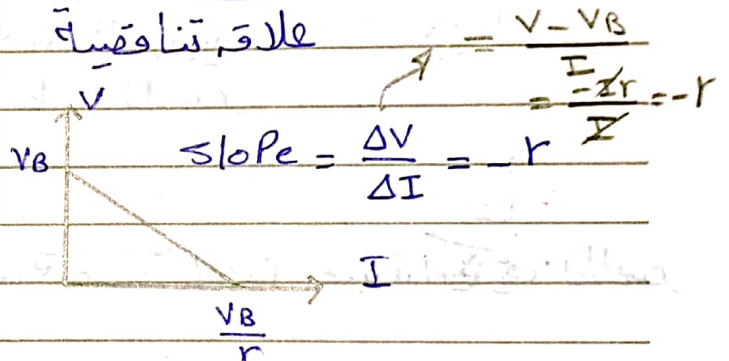 علاقة تناقصية
= V - VB / I
= -Ir / I = -r
V
VB
Slope = ΔV / ΔI = -r
I
VB / r